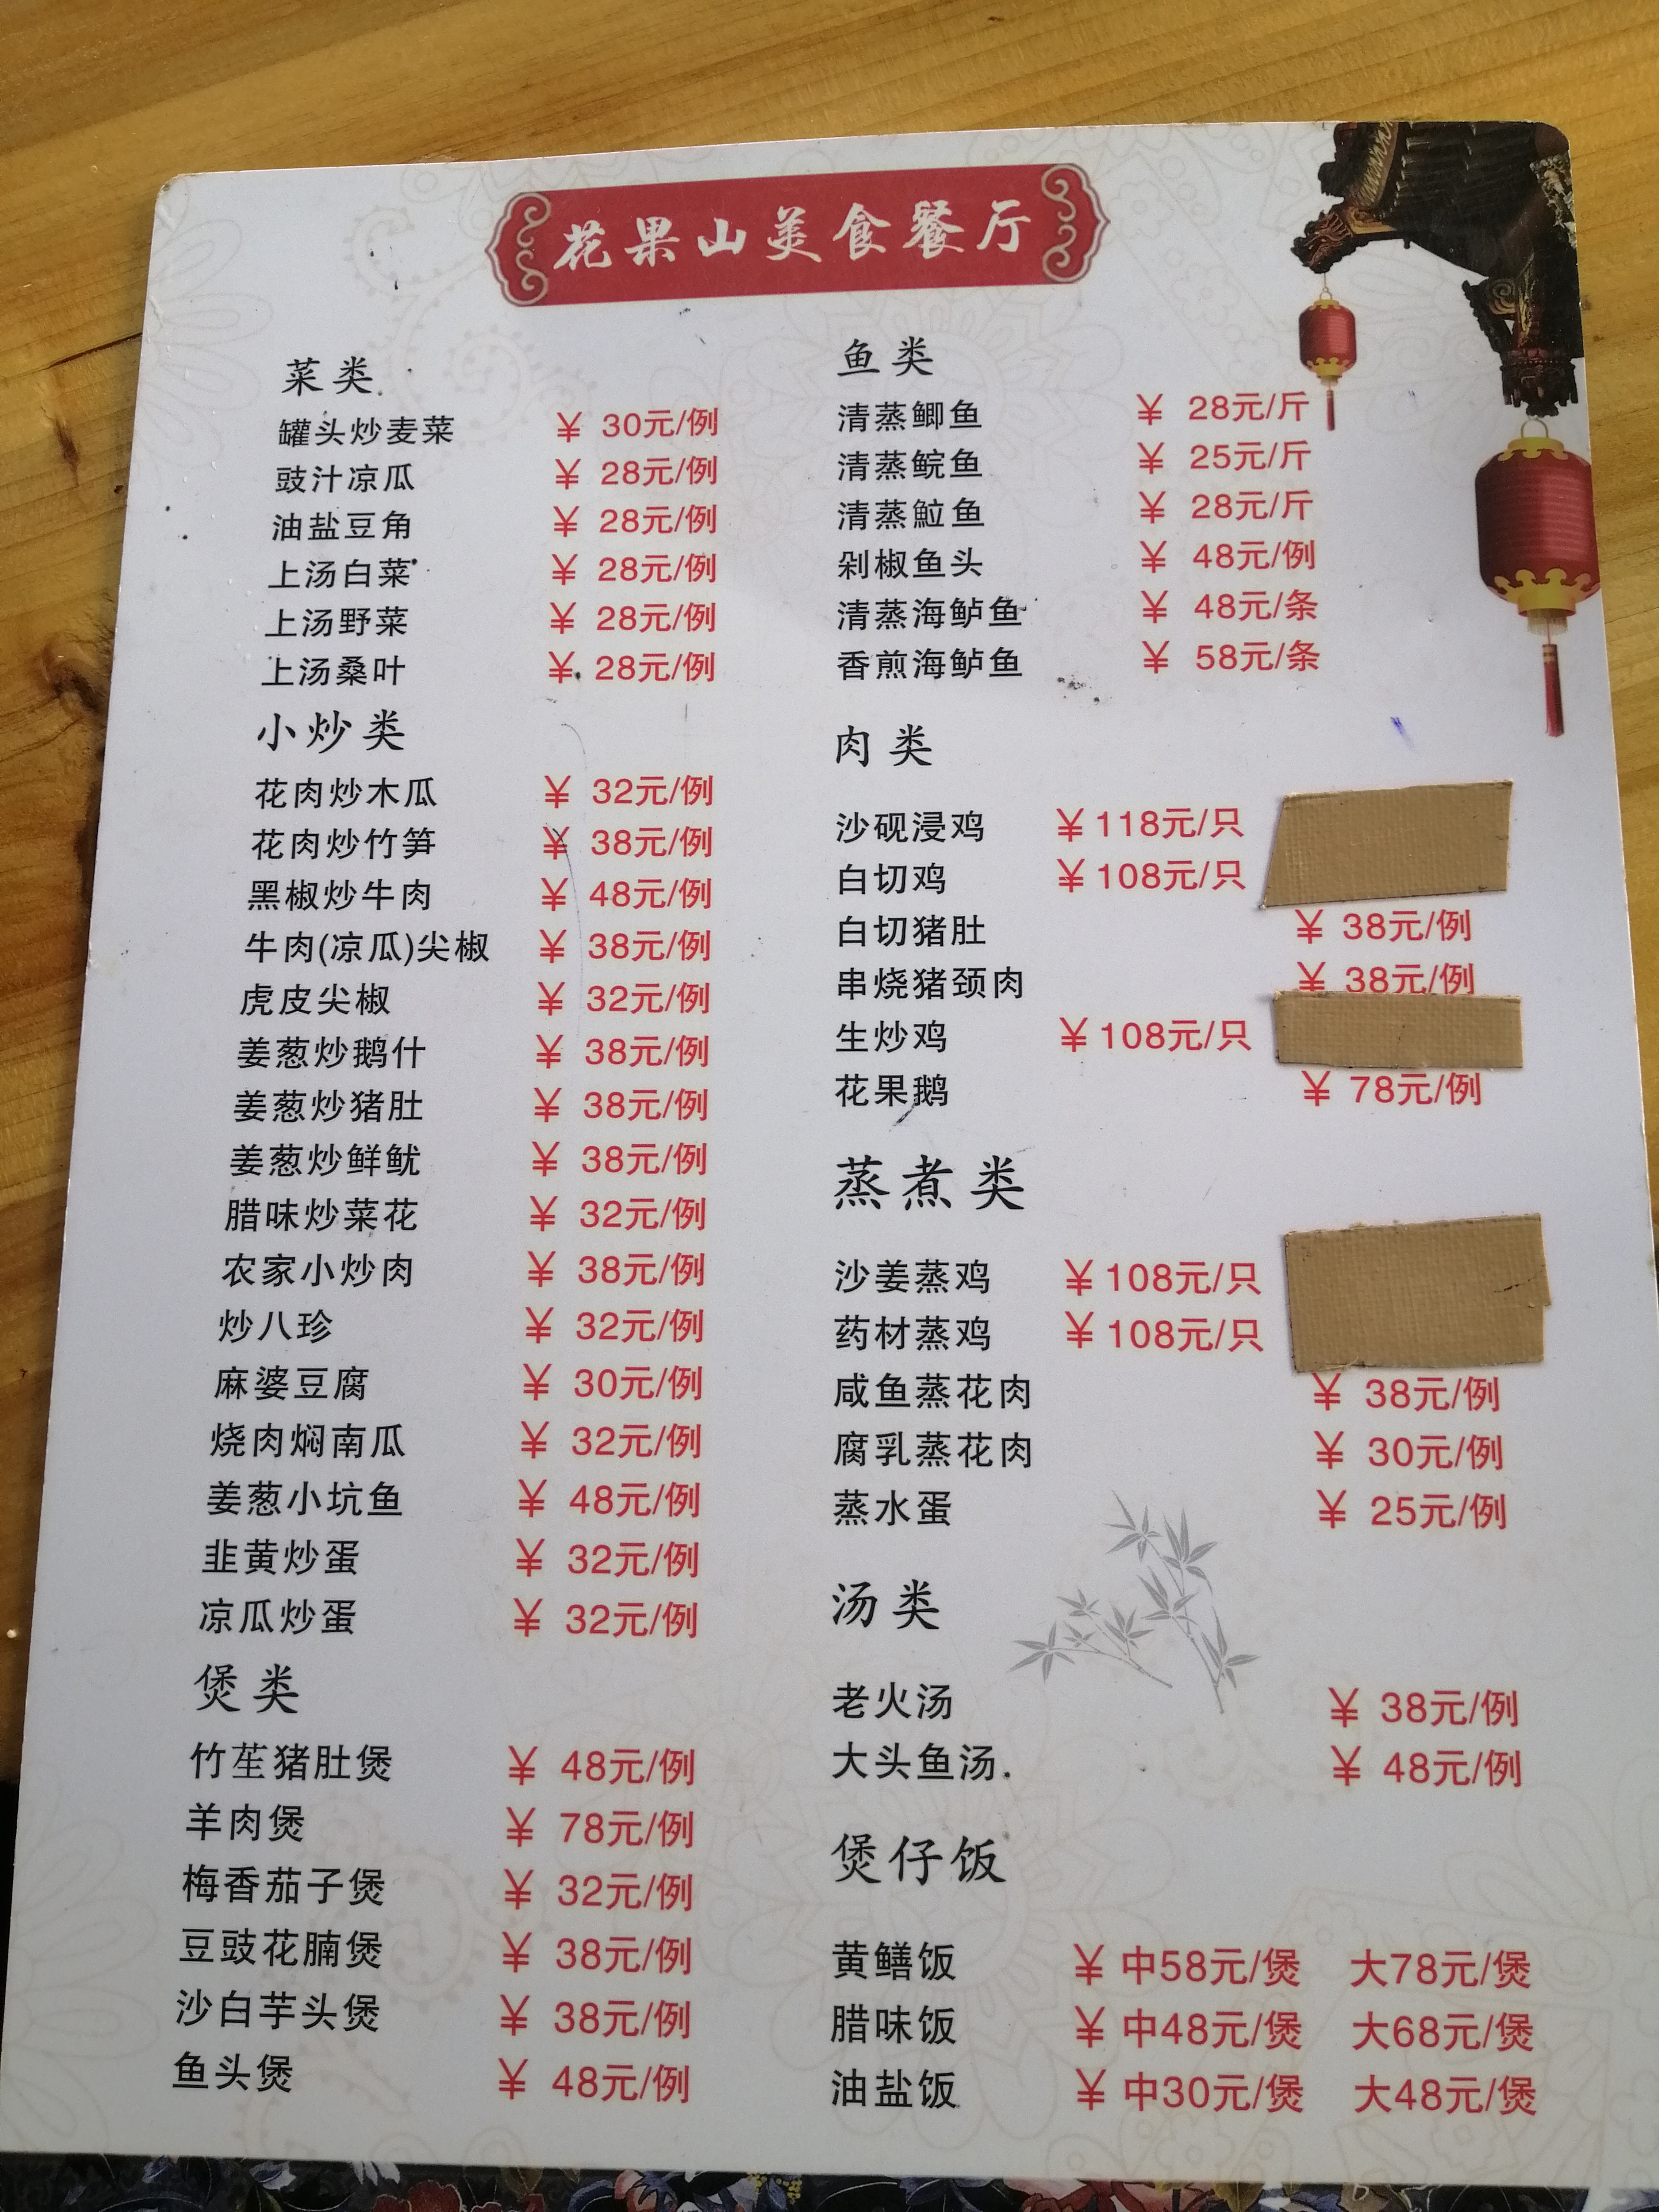 花果山美食餐厅
菜类
罐头炒麦菜 ¥ 30元/例
豉汁凉瓜 ¥ 28元/例
油盐豆角 ¥ 28元/例
上汤白菜 ¥ 28元/例
上汤野菜 ¥ 28元/例
上汤桑叶 ¥ 28元/例
小炒类
花肉炒木瓜 ¥ 32元/例
花肉炒竹笋 ¥ 38元/例
黑椒炒牛肉 ¥ 48元/例
牛肉(凉瓜)尖椒 ¥ 38元/例
虎皮尖椒 ¥ 32元/例
姜葱炒鹅什 ¥ 38元/例
姜葱炒猪肚 ¥ 38元/例
姜葱炒鲜鱿 ¥ 38元/例
腊味炒菜花 ¥ 32元/例
农家小炒肉 ¥ 38元/例
炒八珍 ¥ 32元/例
麻婆豆腐 ¥ 30元/例
烧肉焖南瓜 ¥ 32元/例
姜葱小坑鱼 ¥ 48元/例
韭黄炒蛋 ¥ 32元/例
凉瓜炒蛋 ¥ 32元/例
煲类
竹笙猪肚煲 ¥ 48元/例
羊肉煲 ¥ 78元/例
梅香茄子煲 ¥ 32元/例
豆豉花腩煲 ¥ 38元/例
沙白芋头煲 ¥ 38元/例
鱼头煲 ¥ 48元/例
鱼类
清蒸鲫鱼 ¥ 28元/斤
清蒸鲩鱼 ¥ 25元/斤
清蒸鲉鱼 ¥ 28元/斤
剁椒鱼头 ¥ 48元/例
清蒸海鲈鱼 ¥ 48元/条
香煎海鲈鱼 ¥ 58元/条
肉类
沙砚浸鸡 ¥118元/只
白切鸡 ¥108元/只
白切猪肚 ¥ 38元/例
串烧猪颈肉 ¥ 38元/例
生炒鸡 ¥108元/只
花果鹅 ¥ 78元/例
蒸煮类
沙姜蒸鸡 ¥108元/只
药材蒸鸡 ¥108元/只
咸鱼蒸花肉 ¥ 38元/例
腐乳蒸花肉 ¥ 30元/例
蒸水蛋 ¥ 25元/例
汤类
老火汤 ¥ 38元/例
大头鱼汤 ¥ 48元/例
煲仔饭
黄鳝饭 ¥中58元/煲 大78元/煲
腊味饭 ¥中48元/煲 大68元/煲
油盐饭 ¥中30元/煲 大48元/煲